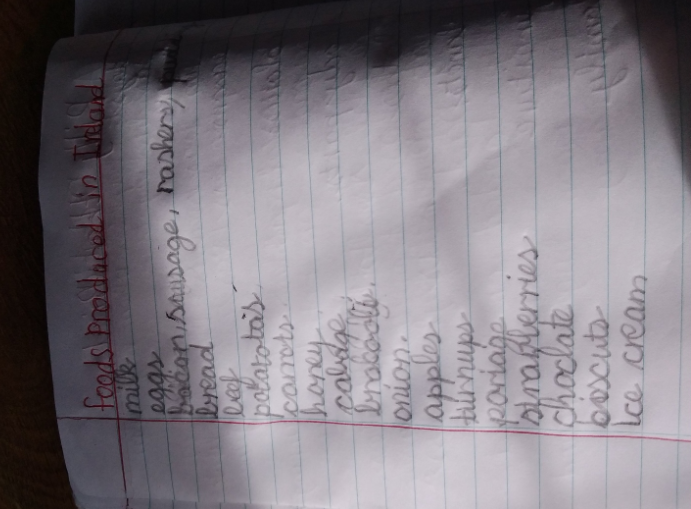 foods Produced in Irland
milk
eggs
bacan, sausage, rashers,
bread
bef
potatotais
carrots.
honey
cabige
brocooly.
onion,
apples
turnups
poriage
strafberries
choclate
biscuts
Ice cream